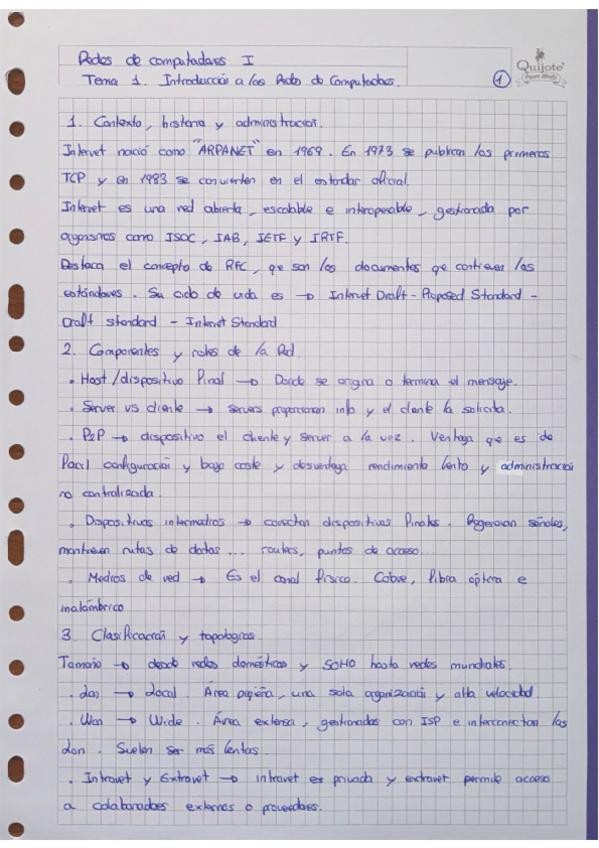 Redes de computadores I
Tema 1. Introducción a las Redes de Computadores.
1
Quijote
1. Contexto, historia y administración.
Internet nació como "ARPANET" en 1969. En 1973 se publican los primeros
TCP y en 1983 se convierten en el estándar oficial.
Internet es una red abierta, escalable e interoperable, gestionada por
organismos como ISOC, IAB, IETF y IRTF.
Destaca el concepto de RFC, que son los documentos que contienen los
estándares. Su ciclo de vida es → Internet Draft - Proposed Standard -
Draft standard - Internet Standard
2. Componentes y roles de la Red.
. Host / dispositivo final → Donde se origina o termina el mensaje.
. Server vs cliente → servers proporcionan info y el cliente la solicita.
. P2P → dispositivo el cliente y server a la vez. Ventaja que es de
facil configuración y bajo coste y desventaja rendimiento lento y administración
no controlada.
. Dispositivos intermedios → conectan dispositivos finales. Regeneran señales,
mantienen rutas de datos... routers, puntos de acceso...
. Medios de red → Es el canal físico. Cobre, fibra óptica e
inalámbrico
3. Clasificación y topologías.
Tamaño → desde redes domésticas y SOHO hasta redes mundiales.
. Lan → Local. Área pequeña, una sola organización y alta velocidad
. Wan → Wide. Área extensa, gestionadas con ISP e interconectan las
Lan. Suelen ser más lentas.
. Intranet y Extranet → intranet es privada y extranet permite acceso
a colaboradores externos o proveedores.